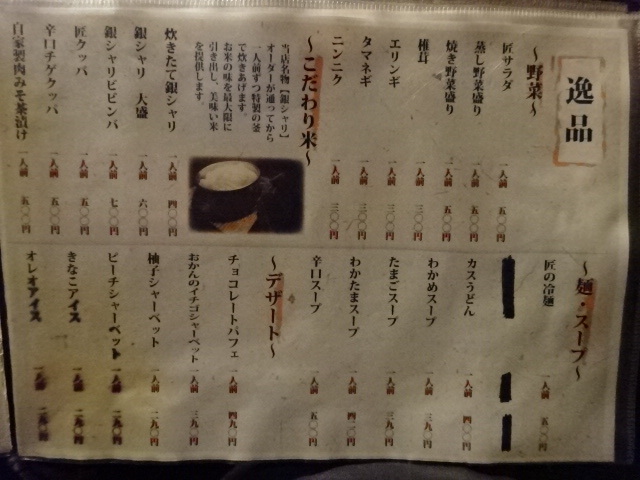 逸品
〜野菜〜
匠サラダ 一人前 五〇〇円
蒸し野菜盛り 一人前 五〇〇円
焼き野菜盛り 一人前 五〇〇円
椎茸 一人前 三〇〇円
エリンギ 一人前 三〇〇円
タマネギ 一人前 三〇〇円
ニンニク 一人前 三〇〇円
〜こだわり米〜
当店名物【銀シャリ】
オーダーが通ってから
一人前ずつ特製の釜
で炊きあげます。
お米の味を最大限に
引き出し、美味い米
を提供します。
炊きたて銀シャリ 一人前 四〇〇円
銀シャリ 大盛 一人前 六〇〇円
銀シャリビビンバ 一人前 七〇〇円
匠クッパ 一人前 五〇〇円
辛口チゲクッパ 一人前 五〇〇円
自家製肉みそ茶漬け 一人前 五〇〇円
〜麺・スープ〜
匠の冷麺 一人前 五〇〇円
カスうどん 一人前 四〇〇円
わかめスープ 一人前 三九〇円
たまごスープ 一人前 三九〇円
わかたまスープ 一人前 四〇〇円
辛口スープ 一人前 五〇〇円
〜デザート〜
チョコレートパフェ 一人前 四九〇円
おかんのイチゴシャーベット 一人前 三九〇円
柚子シャーベット 一人前 二九〇円
ピーチシャーベット 一人前 二九〇円
きなこアイス 一人前 二九〇円
オレオアイス 一人前 二九〇円